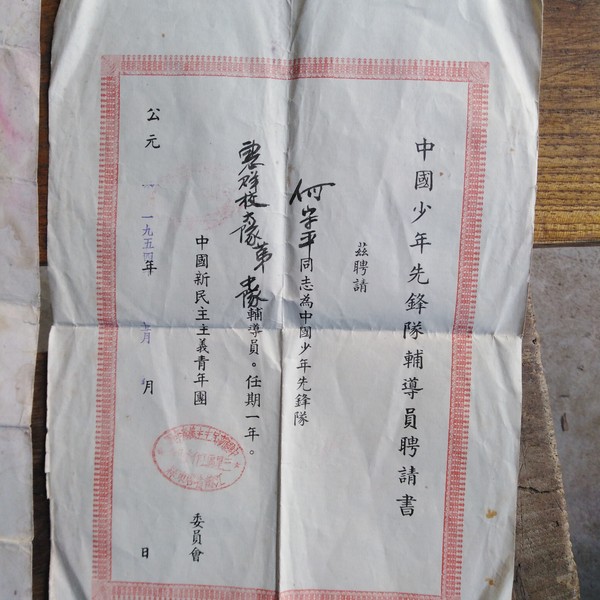 中國少年先鋒隊輔導員聘請書
茲聘請
何宗平同志為中國少年先鋒隊
惠群校大隊第 中隊輔導員。任期一年。
中國新民主主義青年團
委員會
公元 一九五四年 月 日